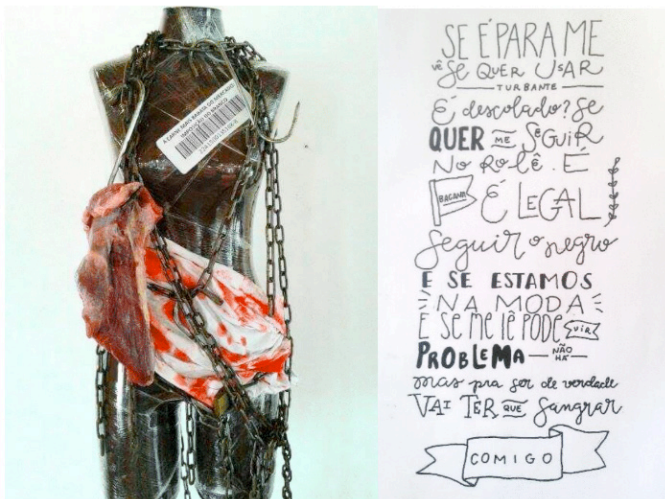 A CARNE MAIS BARATA DO MERCADO
IMPOSIÇÃO DO BRANCO
SE É PARA ME
vê se QUER USAR
TURBANTE
É descolado? Se
QUER ME SEGUIR
No Rolê. É
BACANA É LEGAL
Seguir o negro
E SE ESTAMOS
NA MODA
E SE ME lê PODE VIR
PROBLEMA NÃO HÁ
mas pra ser de verdade
VAI TER QUE Sangrar
COMIGO